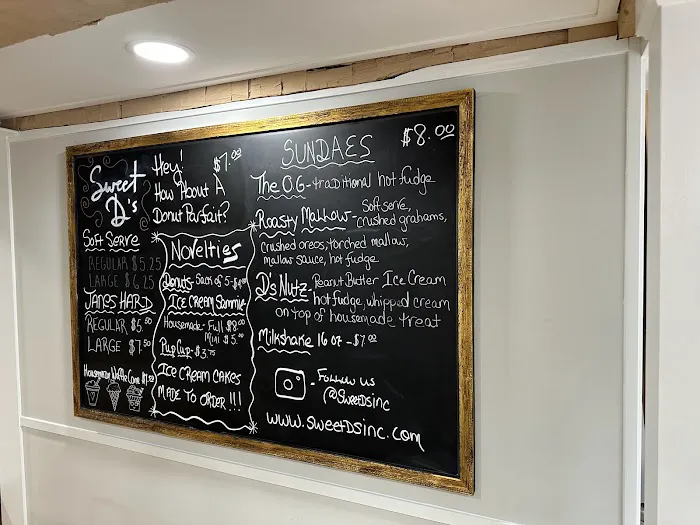 Sweet
D's
Soft Serve
REGULAR $5.25
LARGE $6.25
JANES HARD
REGULAR $6.50
LARGE $7.50
Housemade Waffle Cone
Hey! $7.00
How 'Bout A
Donut Parfait?
Novelties
Donuts - Sack of 5 -
Ice Cream Sammie
Housemade - Full $8.00
Mini $5.00
Pup Cup - $3.75
ICE CREAM CAKES
MADE TO ORDER!!!
SUNDAES $8.00
The O.G - traditional hot fudge
Roasty Mallow - Soft serve,
crushed grahams,
crushed oreos, torched mallow,
mallow sauce, hot fudge
D's Nutz - Peanut Butter Ice Cream
hot fudge, whipped cream
on top of housemade treat
Milkshake 16 oz - $7.00
- Follow us
@SweetDsinc
www.sweetDsinc.com